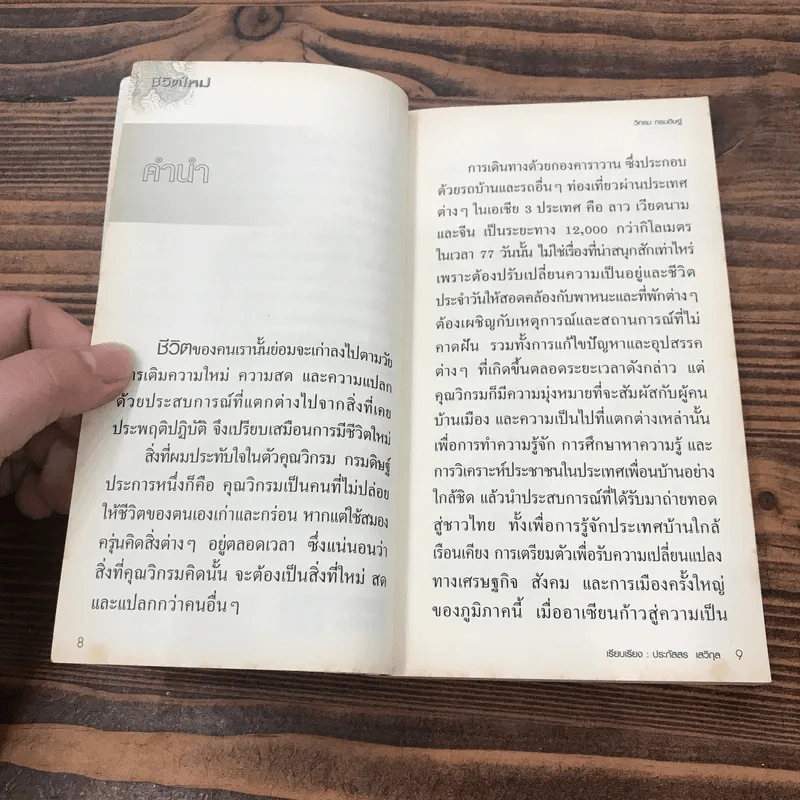 ชีวิตใหม่
คำนำ
ชีวิตของคนเรานั้นย่อมจะเก่าลงไปตามวัย
การเติมความใหม่ ความสด และความแปลก
ด้วยประสบการณ์ที่แตกต่างไปจากสิ่งที่เคย
ประพฤติปฏิบัติ จึงเปรียบเสมือนการมีชีวิตใหม่
สิ่งที่ผมประทับใจในตัวคุณวิกรม กรมดิษฐ์
ประการหนึ่งก็คือ คุณวิกรมเป็นคนที่ไม่ปล่อย
ให้ชีวิตของตนเองเก่าและกร่อน หากแต่ใช้สมอง
ครุ่นคิดสิ่งต่างๆ อยู่ตลอดเวลา ซึ่งแน่นอนว่า
สิ่งที่คุณวิกรมคิดนั้น จะต้องเป็นสิ่งที่ใหม่ สด
และแปลกกว่าคนอื่นๆ
8
วิกรม กรมดิษฐ์
การเดินทางด้วยกองคาราวาน ซึ่งประกอบ
ด้วยรถบ้านและรถอื่นๆ ท่องเที่ยวผ่านประเทศ
ต่างๆ ในเอเชีย 3 ประเทศ คือ ลาว เวียดนาม
และจีน เป็นระยะทาง 12,000 กว่ากิโลเมตร
ในเวลา 77 วันนั้น ไม่ใช่เรื่องที่น่าสนุกสักเท่าไหร่
เพราะต้องปรับเปลี่ยนความเป็นอยู่และชีวิต
ประจำวันให้สอดคล้องกับพาหนะและที่พักต่างๆ
ต้องเผชิญกับเหตุการณ์และสถานการณ์ที่ไม่
คาดฝัน รวมทั้งการแก้ไขปัญหาและอุปสรรค
ต่างๆ ที่เกิดขึ้นตลอดระยะเวลาดังกล่าว แต่
คุณวิกรมก็มีความมุ่งหมายที่จะสัมผัสกับผู้คน
บ้านเมือง และความเป็นไปที่แตกต่างเหล่านั้น
เพื่อการทำความรู้จัก การศึกษาหาความรู้ และ
การวิเคราะห์ประชาชนในประเทศเพื่อนบ้านอย่าง
ใกล้ชิด แล้วนำประสบการณ์ที่ได้รับมาถ่ายทอด
สู่ชาวไทย ทั้งเพื่อการรู้จักประเทศบ้านใกล้
เรือนเคียง การเตรียมตัวเพื่อรับความเปลี่ยนแปลง
ทางเศรษฐกิจ สังคม และการเมืองครั้งใหญ่
ของภูมิภาคนี้ เมื่ออาเซียนก้าวสู่ความเป็น
เรียบเรียง : ประภัสสร เสวิกุล 9